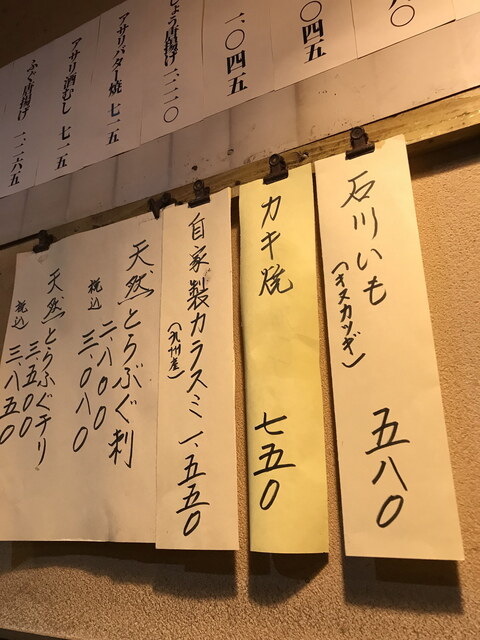 〇
〇四五
一、〇四五
しょう唐揚げ 一、一一〇
アサリバター焼 七一五
アサリ酒むし 七一五
ふぐ唐揚げ 一、二六五
石川いも
(キヌカツギ)
五八〇
カキ焼 七五〇
自家製カラスミ 一、五五〇
(九州産)
天然とらふぐ刺
二、八〇〇
税込 三、〇八〇
天然とらふぐチリ
三、五〇〇
税込 三、八五〇